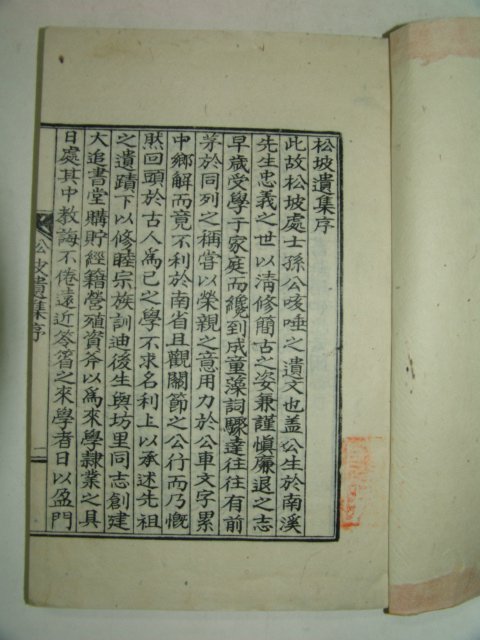 松坡遺集序
此故松坡處士孫公咳唾之遺文也盖公生於南溪
先生忠義之世以清修簡古之姿兼謹愼廉退之志
早歲受學于家庭而纔到成童藻詞驟達往往有前
茅於同列之稱嘗以榮親之意用力於公車文字累
中鄕解而竟不利於南省且觀關節之公行而乃慨
然回頭於古人爲己之學不求名利上以承述先祖
之遺蹟下以修睦宗族訓迪後生與坊里同志創建
大追書堂購貯經籍營殖資斧以爲來學隷業之具
日處其中教誨不倦遠近笭箵之來學者日以盈門
松坡遺集序